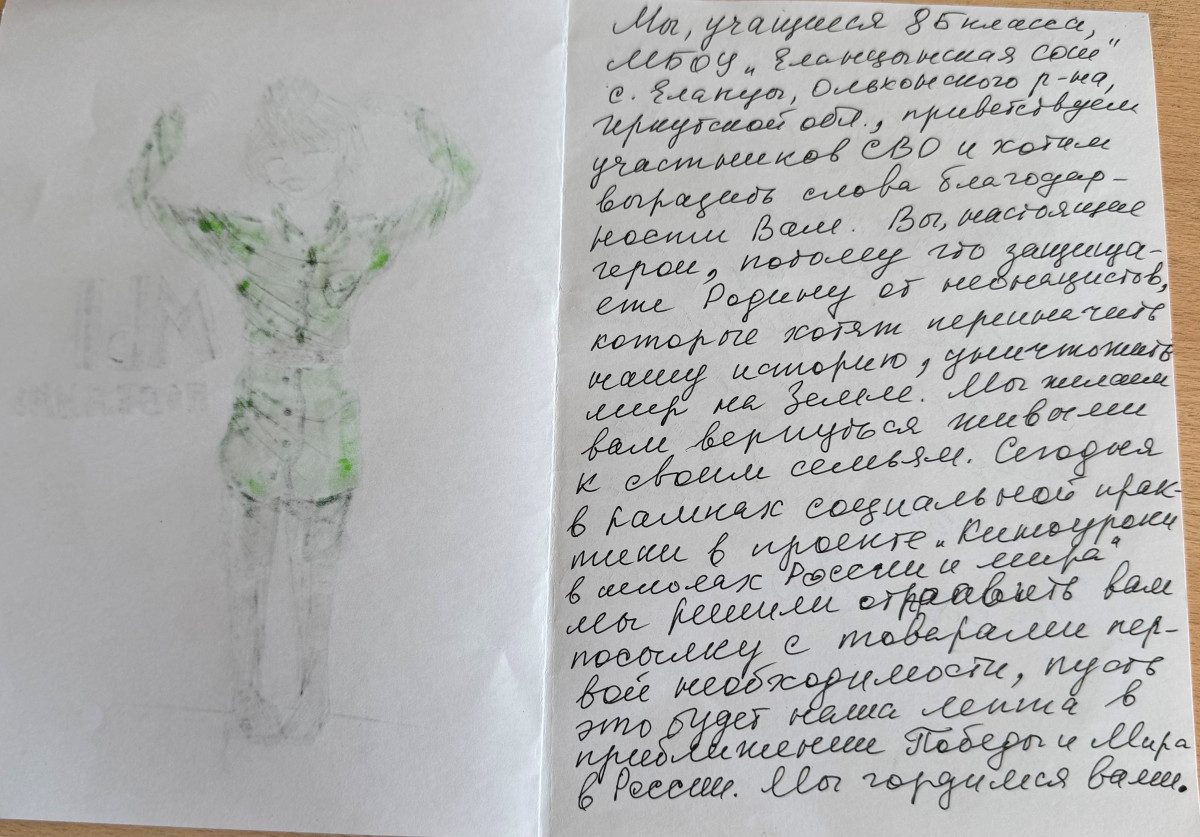 МЫ
ПОБЕДИМ
Мы, учащиеся 8Б класса,
МБОУ „Еланцынская сош"
с. Еланцы, Ольхонского р-на,
Иркутской обл., приветствуем
участников СВО и хотим
выразить слова благодар-
ности Вам. Вы, настоящие
герои, потому что защища-
ете Родину от неонацистов,
которые хотят переиначить
нашу историю, уничтожить
мир на Земле. Мы желаем
вам вернуться живыми
к своим семьям. Сегодня
в рамках социальной прак-
тики в проекте „Киноуроки
в школах России и мира"
мы решили отправить вам
посылку с товарами пер-
вой необходимости, пусть
это будет наша лепта в
приближении Победы и Мира
в России. Мы гордимся вами.